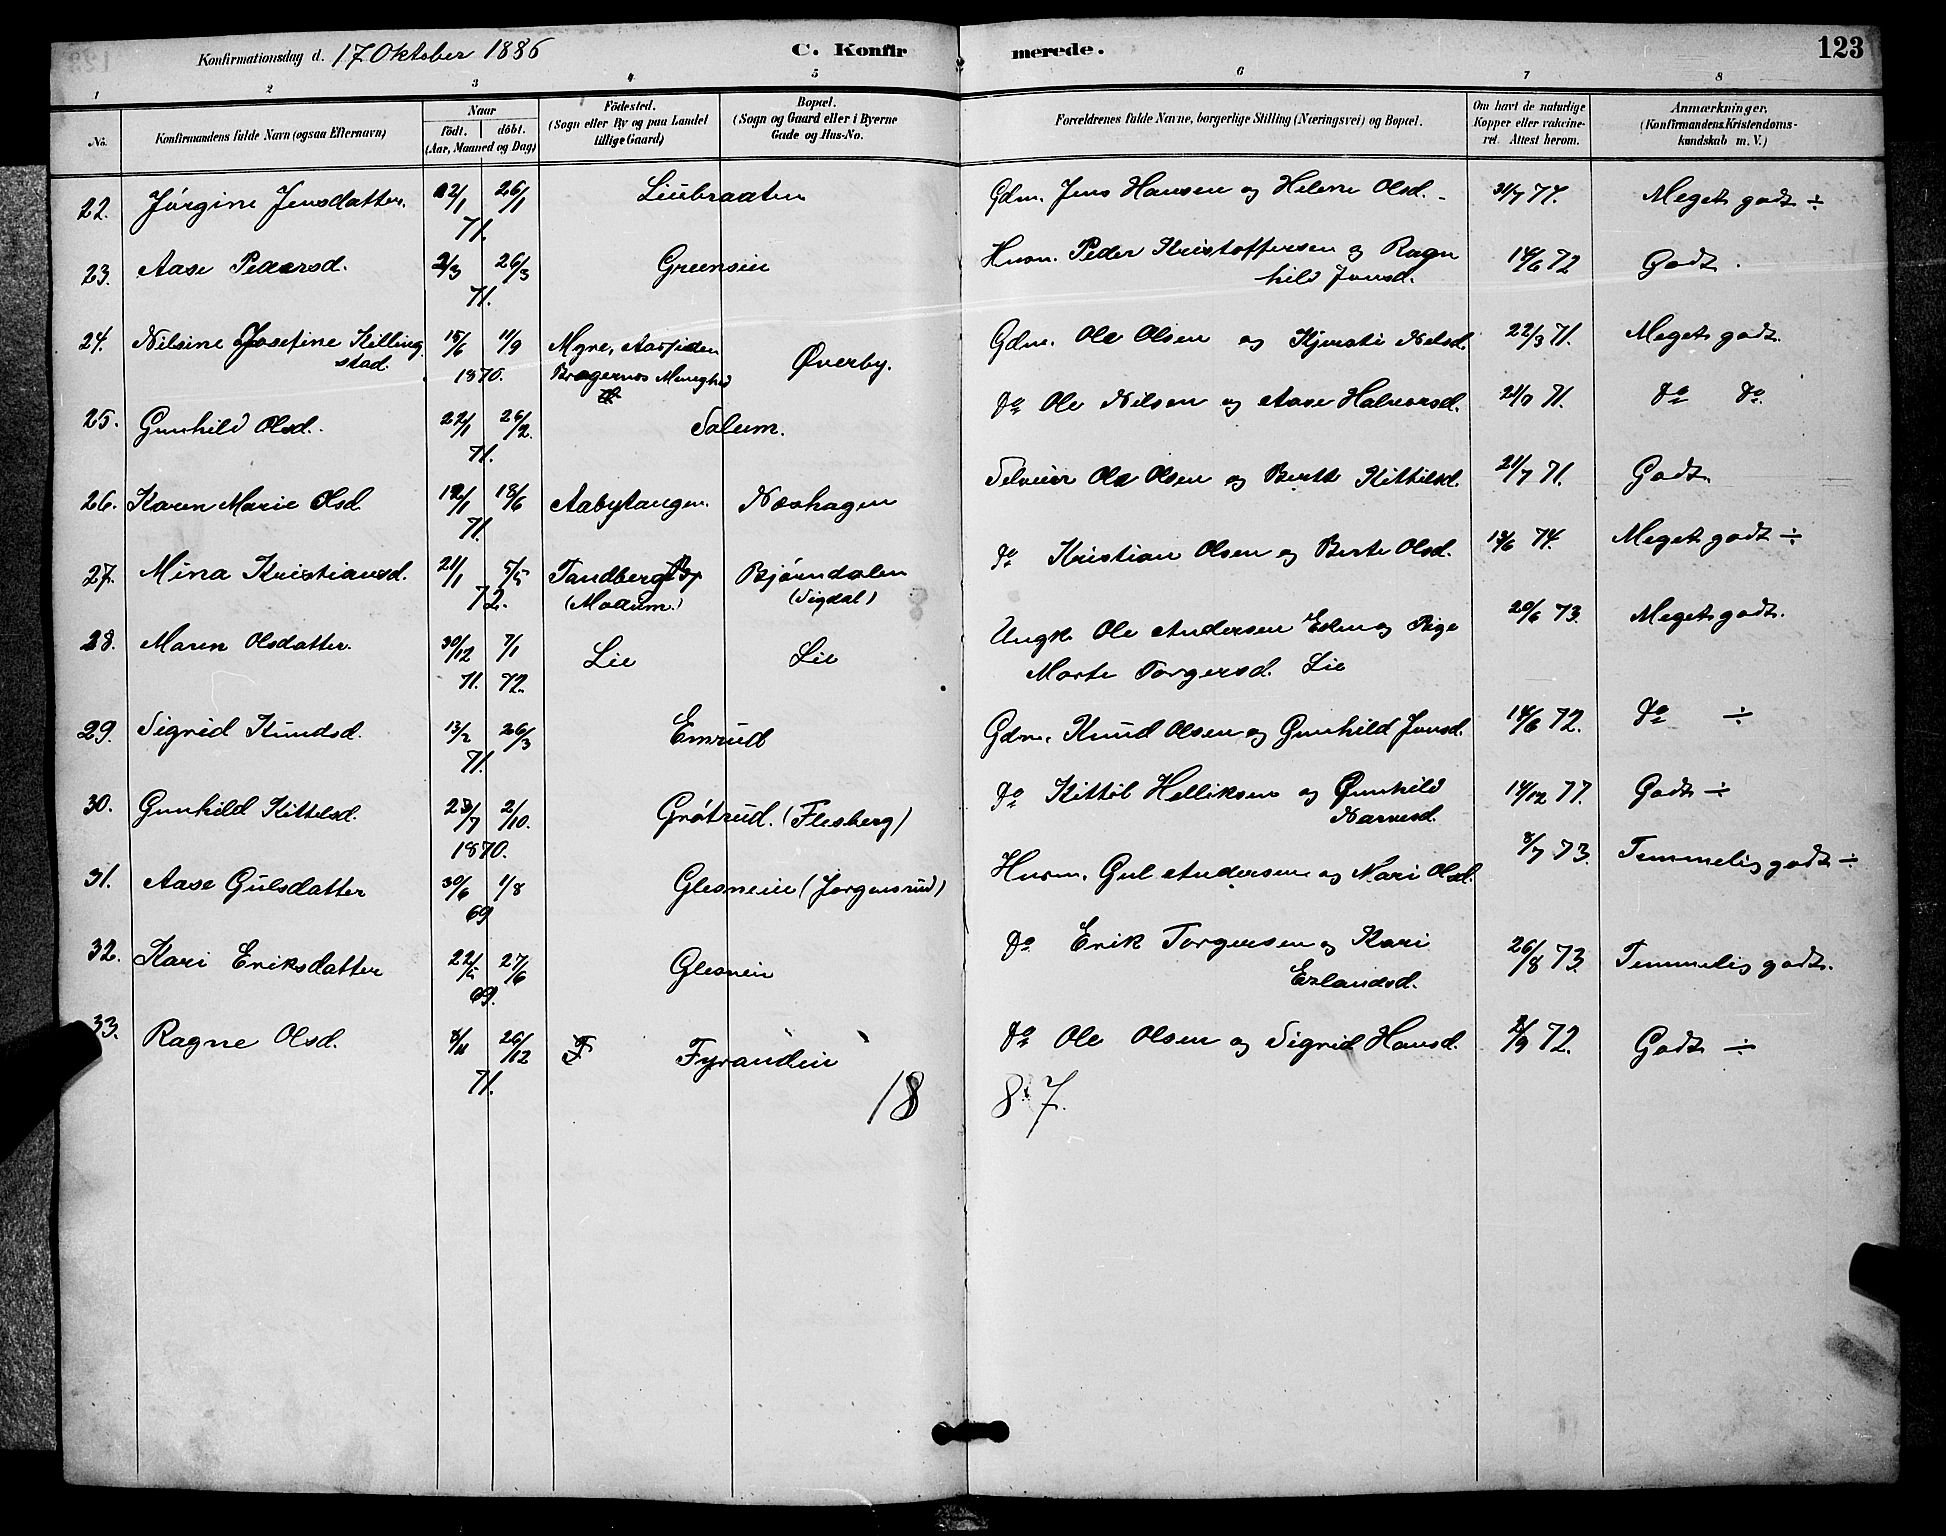 Konfirmationsdag d. 17 Oktober 1886
C. Konfirmerede.
123
1 2 3 4 5 6 7 8
No.
Konfirmandens fulde Navn (ogsaa Efternavn)
Naar
födt. döbt.
(Aar, Maaned og Dag)
Födested.
(Sogn eller By og paa Landet
tillige Gaard)
Bopæl.
(Sogn og Gaard eller i Byerne
Gade og Hus-No.
Forældrenes fulde Navne, borgerlige Stilling (Næringsvei) og Bopæl.
Om havt de naturlige
Kopper eller vakcine-
ret. Attest herom.
Anmærkninger.
(Konfirmandens Kristendoms-
kundskab m. V.)
22. Jörgine Jensdatter. 2/1 26/1 71. Liubraaten Gdm. Jens Hansen og Helene Olsd. 31/7 77. Meget godt ÷
23. Aase Pedersd. 2/3 26/3 71. Greensin Husm. Peder Kristoffersen og Ragn
hild Jonsd. 14/6 72 Godt.
24. Nilsine Josefine Killing
stad. 15/6 11/9 1870. Myre, Aassiden
Bragernes Menighed Øverby. Gdm. Ole Olsen og Kjersti Nelsd. 22/3 71. Meget godt.
25. Gunhild Olsd. 22/1 26/2. 71. Solum. do Ole Nilsen og Aase Halvorsd. 21/7 71. do do.
26. Karen Marie Olsd. 12/1 18/6 71. Aabytangen. Næshagen Selveier Ole Olsen og Berte Kittilsd. 21/7 71. Godt.
27. Mina Kristiansd. 21/1 5/5 72. Tandberg
(Modum.) Bjørndalen
(Sigdal) do Kristian Olsen og Berte Olsd. 14/6 74. Meget godt ÷
28. Maren Olsdatter. 30/12 71. 7/1 72. Lie Lie Ungk. Ole Andersen og Pige
Marte Torgersd. Lie 20/6 73. Meget godt.
29. Sigrid Knudsd. 13/2 26/3 71. Emrud Gdm. Knud Olsen og Gunhild Jonsd. 14/6 72. do ÷
30. Gunhild Kittelsd. 23/7 2/10. 1870. Grøtrud. (Flesberg) do Kittil Helliksen og Gunhild
Narvesd. 14/12 77. Godt ÷
31. Aase Gulsdatter 30/6 1/8 69 Glesneie (Jorgensrud) Husm. Gul Andersen og Nari Olsd. 8/7 73. Temmelig godt ÷
32. Kari Eriksdatter 22/5 27/6 69. Glesneie do Erik Torgersen og Kari
Erlandsd. 26/8 73. Temmelig godt.
33. Ragne Olsd. 8/11 26/12 71. F Fyrandeie do Ole Olsen og Sigrid Hansd. 2/9 72. Godt ÷
18 87.